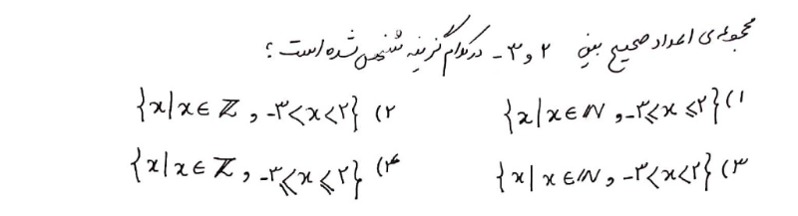 مجموعه‌ی اعداد صحیح بین ۲ و ۳- در کدام گزینه مشخص شده است؟
۱) {x|x∈ℕ , -۳⩽x⩽۲} ۲) {x|x∈ℤ , -۳<x<۲}
۳) {x|x∈ℕ , -۳<x<۲} ۴) {x|x∈ℤ , -۳⩽x⩽۲}